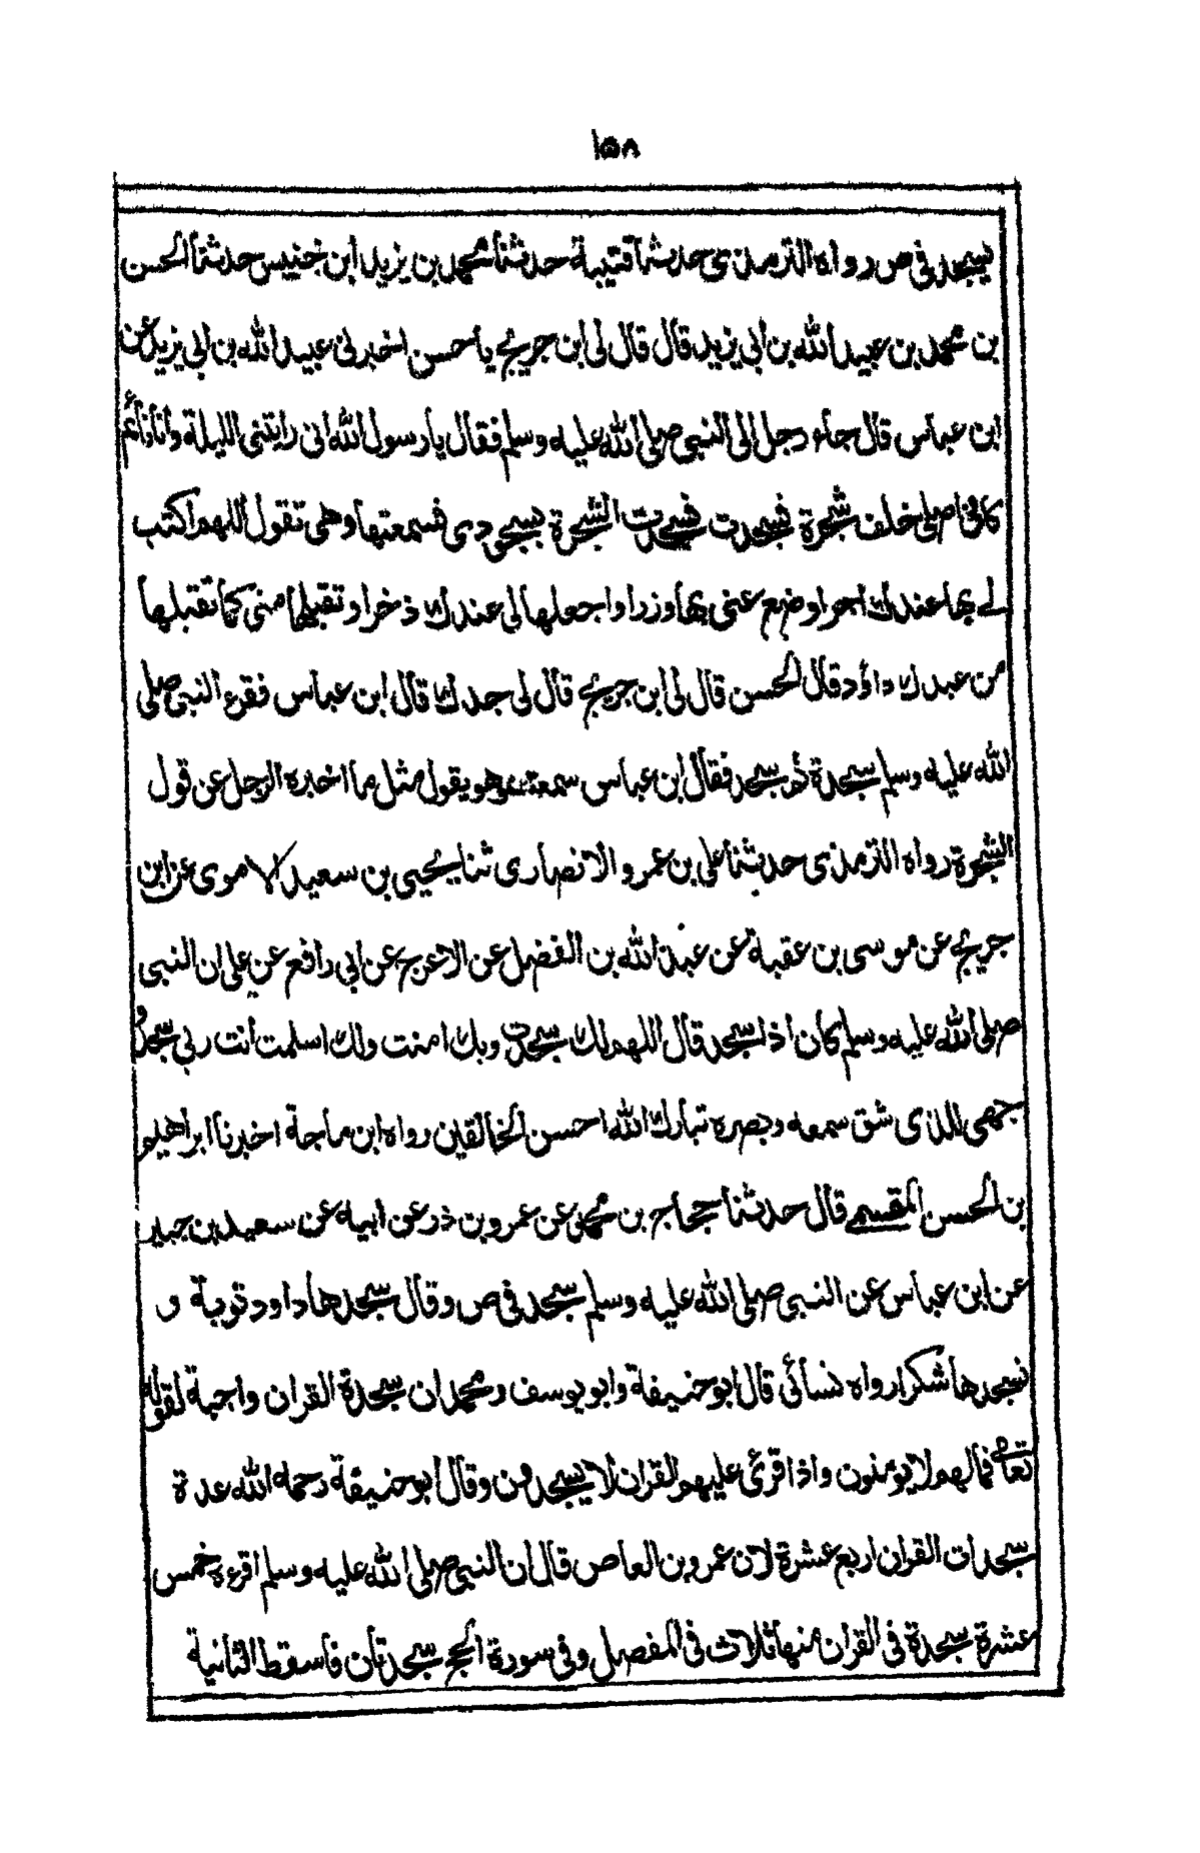 ١٥٨
يسجد في ص رواه الترمذي حدثنا قتيبة حدثنا محمد بن يزيد ابن خنيس حدثنا الحسن
بن محمد بن عبيد الله بن ابي يزيد قال قال لي ابن جريج يا حسن اخبرني عبيد الله بن ابي يزيد عن
ابن عباس قال جاء رجل الى النبي صلى الله عليه وسلم فقال يا رسول الله اني رايتني الليلة وانا نائم
كاني اصلي خلف شجرة فسجدت فسجدت الشجرة بسجودي فسمعتها وهي تقول اللهم اكتب
لي بها عندك اجرا وضع عني بها وزرا واجعلها لي عندك ذخرا وتقبلها مني كما تقبلها
من عبدك داؤد قال الحسن قال لي ابن جريج قال لي جدك قال ابن عباس فقرء النبي صلى
الله عليه وسلم سجدة ثم سجد فقال ابن عباس سمعته وهو يقول مثل ما اخبره الرجل عن قول
الشجرة رواه الترمذي حدثنا علي بن عمرو الانصاري ثنا يحيى بن سعيد الاموي عن ابن
جريج عن موسى بن عقبة عن عبد الله بن الفضل عن الاعرج عن ابي رافع عن علي ان النبي
صلى الله عليه وسلم كان اذا سجد قال اللهم لك سجدت وبك امنت ولك اسلمت انت ربي سجد و
جهي للذي شق سمعه وبصره تبارك الله احسن الخالقين رواه ابن ماجة اخبرنا ابراهيم
بن الحسن المقسمي قال حدثنا حجاج بن محمد عن عمرو بن ذر عن ابيه عن سعيد بن جبير
عن ابن عباس عن النبي صلى الله عليه وسلم سجد في ص وقال سجدها داود توبة و
نسجدها شكرا رواه نسائي قال ابو حنيفة وابو يوسف ومحمد ان سجدة القران واجبة لقوله
تعالى فما لهم لا يؤمنون واذا قرئ عليهم القران لا يسجدون وقال ابو حنيفة رحمه الله عدة
سجدات القران اربع عشرة لان عمرو بن العاص قال ان النبي صلى الله عليه وسلم اقرءه خمس
عشرة سجدة في القران منها ثلاث في المفصل وفي سورة الحج سجدتان فاسقط الثانية